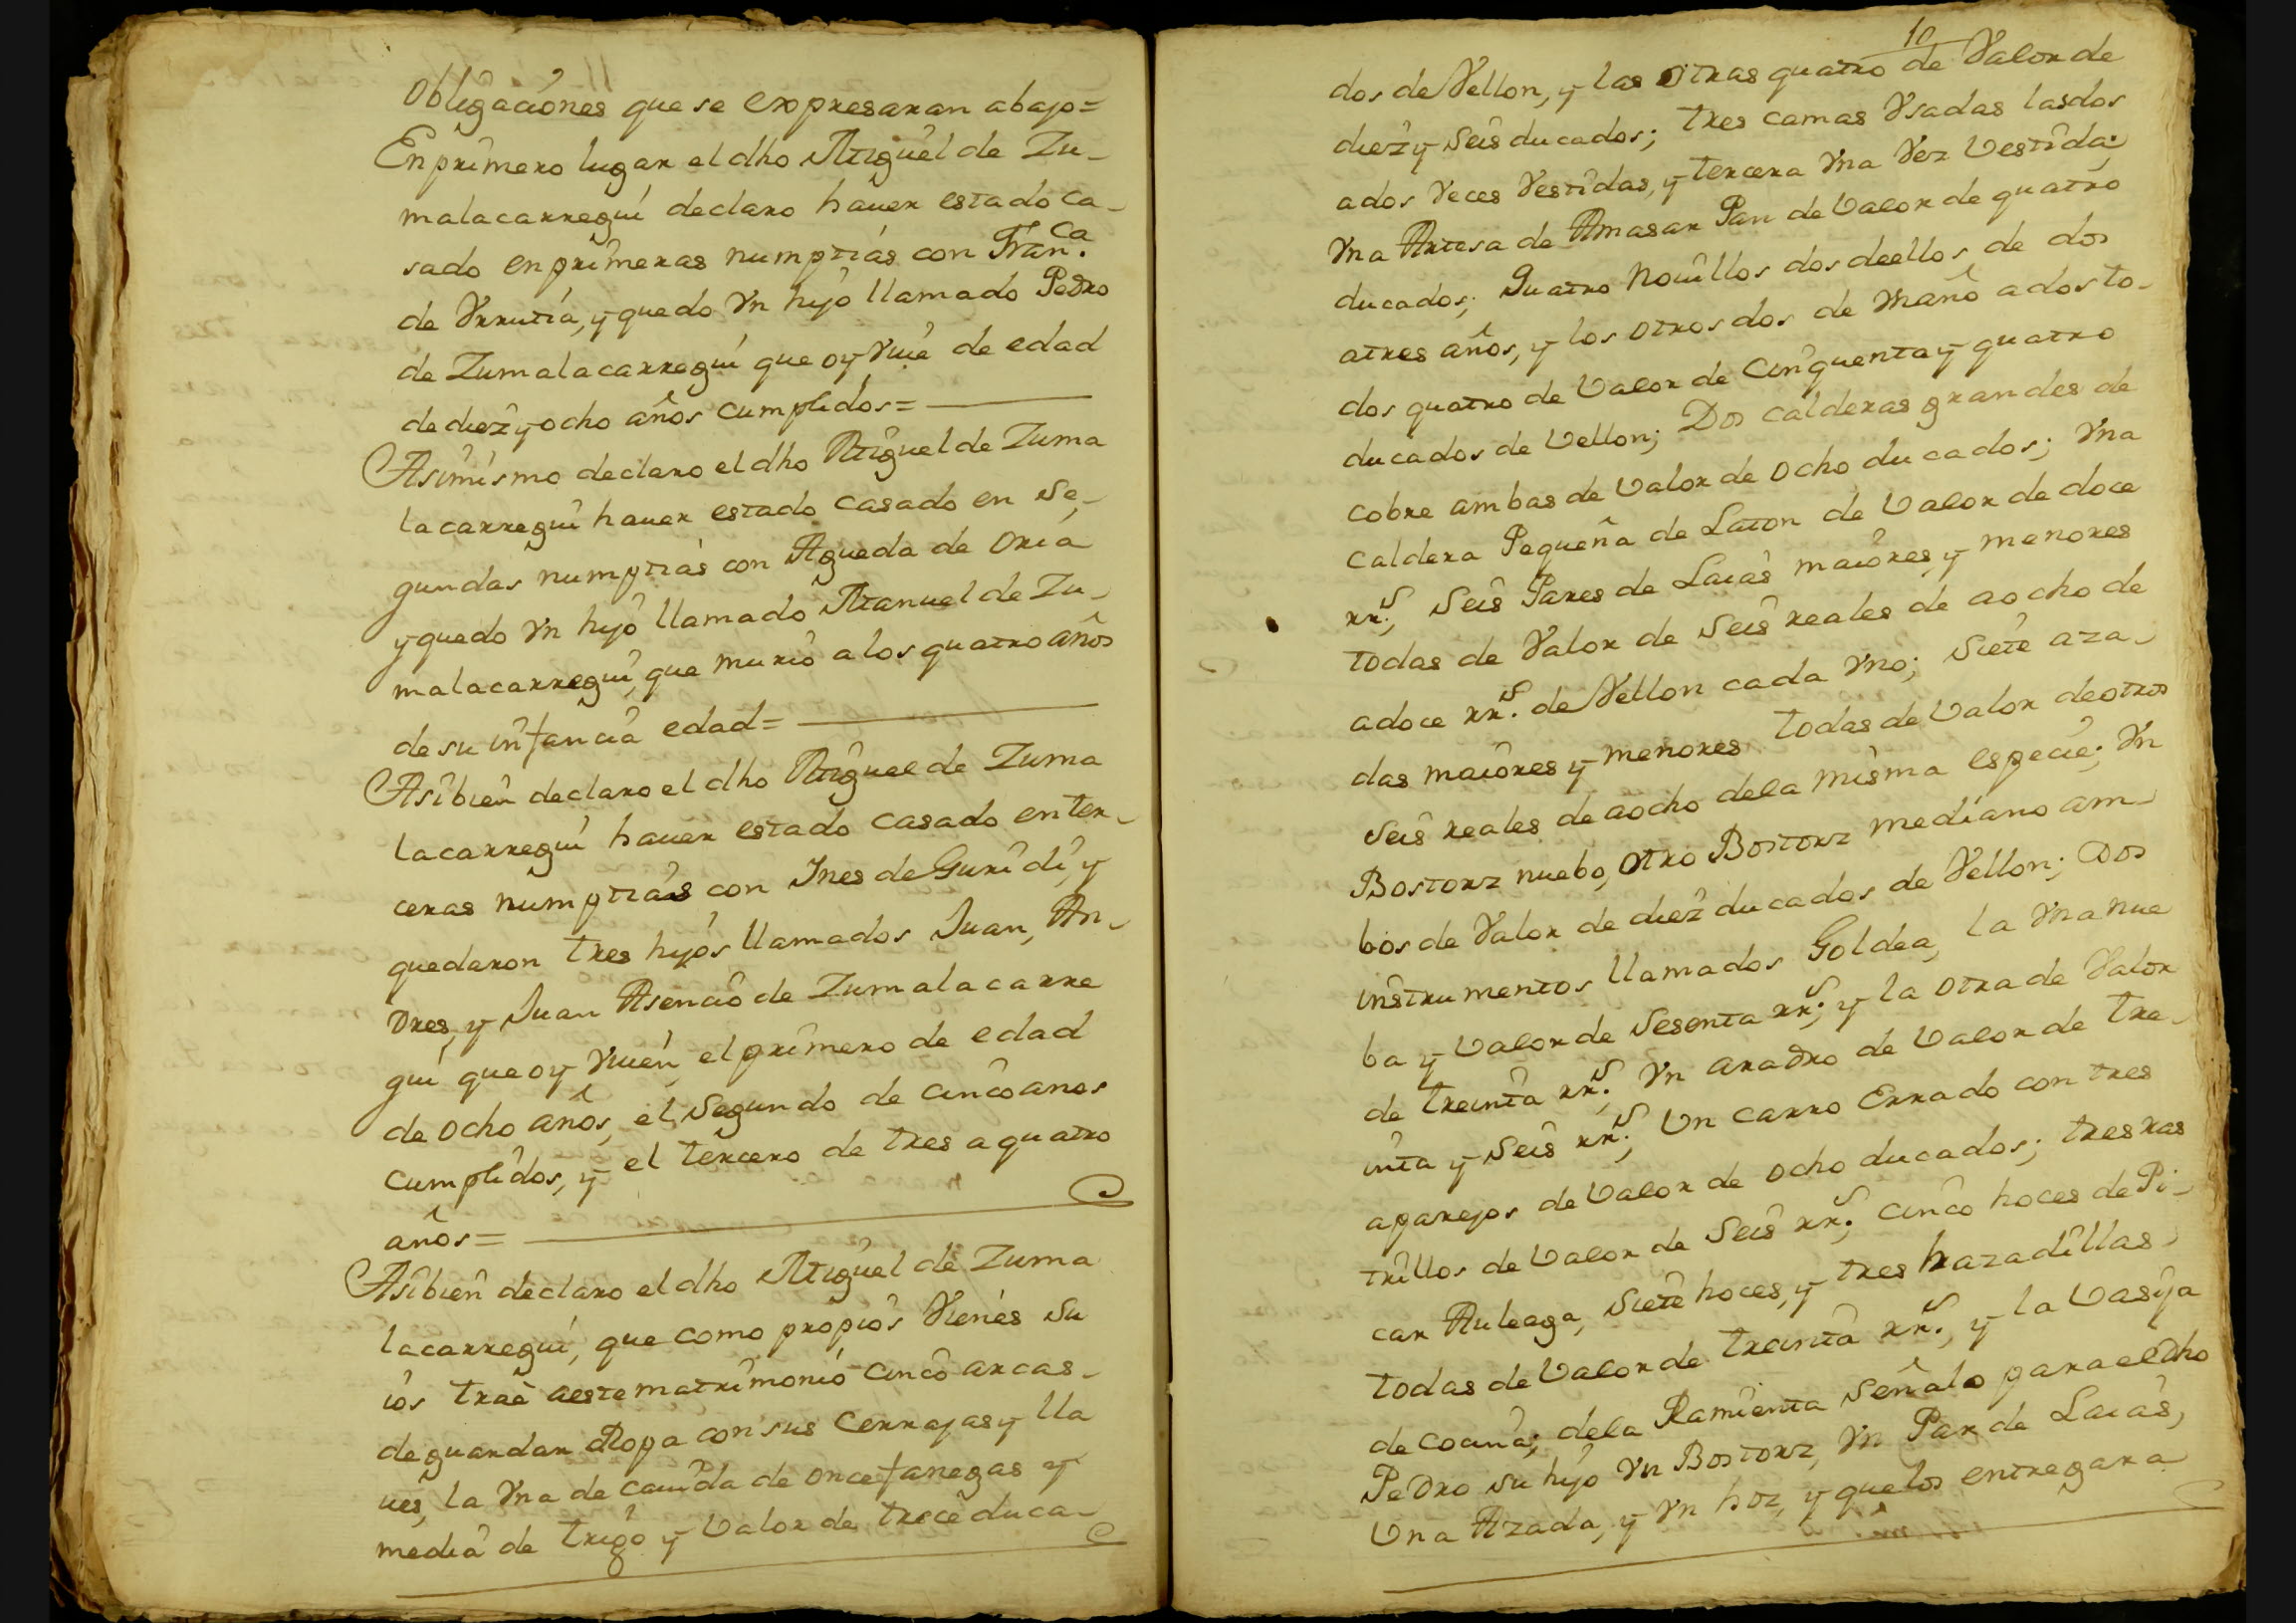 Obligaciones que se expresaran abajo=
En primero lugar el dho Miguel de Zu-
malacarregui declaro hauer estado ca-
sado en primeras numptias con Fran.ca
de Vrrutia, y quedo Vn hijo llamado Pedro
de Zumalacarregui que oy Viue de edad
de diez y ocho años cumplidos=
Asimismo declaro el dho Miguel de Zuma
lacarregui hauer estado casado en Se-
gundas numptias con Agueda de Oria
y quedo Vn hijo llamado Manuel de Zu-
malacarregui, que murio a los quatro años
de su infancia edad=
Asibien declaro el dho Miguel de Zuma
lacarregui hauer estado casado en ter-
ceras numptias con Ines de Guridi, y
quedaron tres hijos llamados Juan, An-
dres, y Juan Asencio de Zumalacarre
gui que oy Viuen, el primero de edad
de ocho años, el Segundo de cinco anos
cumplidos, y el tercero de tres a quatro
años=
Asibien declaro el dho Miguel de Zuma
lacarregui, que como propios Vienes Su
ios trae a este matrimonio cinco arcas-
de guardar Ropa con sus Cerrajas y lla
ues, la Vna de cauida de once fanegas y
media de trigo y Valor de trece duca-
10
dos de Vellon, y las otras quatro de Valor de
diez y Seis ducados; tres camas Vsadas las dos
a dos Veces Vestidas, y tercera Vna Vez Vestida;
Vna Artesa de Amasar Pan de Valor de quatro
ducados; Quatro Nouillos dos de ellos de dos
a tres años, y los otros dos de Vn año a dos to-
dos quatro de Valor de Cinquenta y quatro
ducados de Vellon; Dos calderas grandes de
cobre ambas de Valor de ocho ducados; Vna
caldera Pequeña de Laton de Valor de doce
rr.s; Seis Pares de Laias maiores y menores
todas de Valor de Seis reales de a ocho de
a doce rr.s de Vellon cada Vno; Siete aza-
das maiores y menores todas de Valor de otros
Seis reales de a ocho dela misma especie; Vn
Bostorz nuebo, otro Bostorz mediano am-
bos de Valor de diez ducados de Vellon; Dos
instrumentos llamados Goldea, la Vna nue
ba y Valor de Sesenta rr.s; y la otra de Valor
de treinta rr.s; Vn aradro de Valor de tre-
inta y Seis rr.s; Vn carro Errado con tres
aparejos de Valor de ocho ducados; tres ras
trillos de Valor de Seis rr.s cinco hoces de Pi-
car Auleaga, Siete hoces, y tres hazadillas
todas de Valor de treinta rr.s, y la Vasija
de cocina; dela Ramienta Señalo para el dho
Pedro su hijo Vn Bostorz, Vn Par de Laias,
Vna Azada, y Vn hoz, y que los entregara